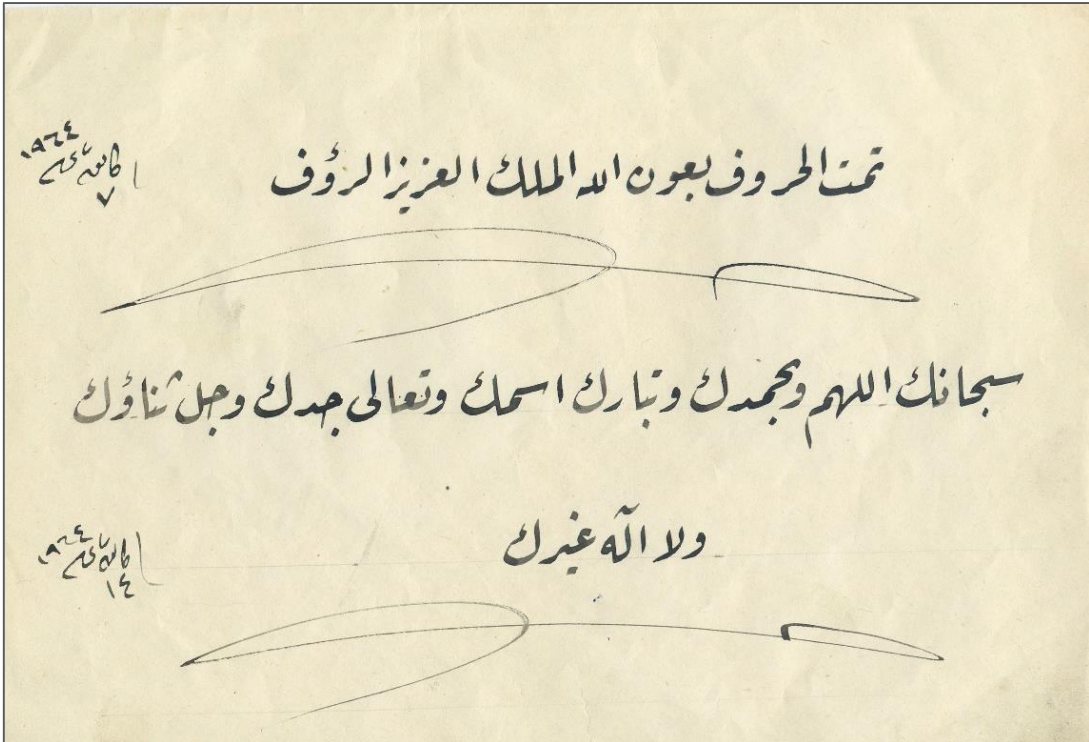 تمت الحروف بعون الله الملك العزيز الرؤف
١٩٦٤
٧
سبحانك اللهم وبحمدك وتبارك اسمك وتعالى جدك وجل ثناؤك
ولا اله غيرك
١٩٦٤
١٤